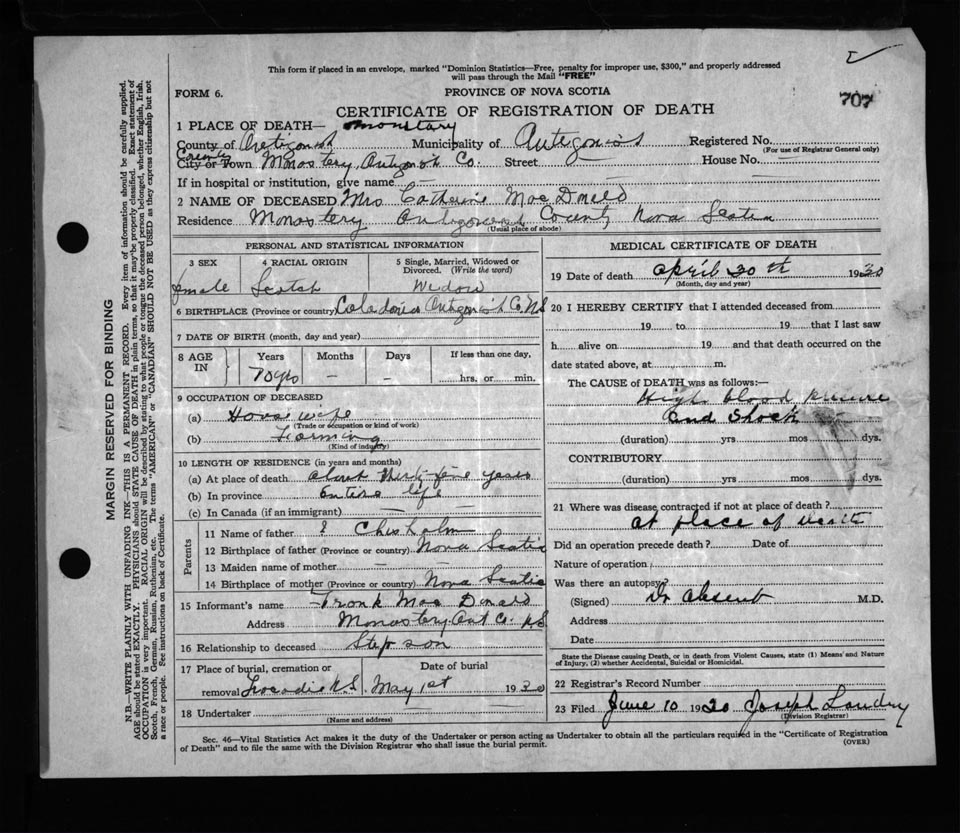 This form if placed in an envelope, marked "Dominion Statistics—Free, penalty for improper use, $300," and properly addressed
will pass through the Mail "FREE"
FORM 6.
PROVINCE OF NOVA SCOTIA
707
CERTIFICATE OF REGISTRATION OF DEATH
1 PLACE OF DEATH— Monstary
County of Antigonish Municipality of Antigonish Registered No.
(For use of Registrar General only)
County
City or Town Monastery Antigonish Co. Street House No. —
If in hospital or institution, give name —
2 NAME OF DECEASED Mrs Catherine MacDonald
Residence Monastery Antigonish County Nova Scotia
(Usual place of abode)
PERSONAL AND STATISTICAL INFORMATION
3 SEX
female
4 RACIAL ORIGIN
Scotch
5 Single, Married, Widowed or
Divorced. (Write the word)
Widow
6 BIRTHPLACE (Province or country) Antigonish Co. N.S
7 DATE OF BIRTH (month, day and year)
8 AGE IN
Years Months Days If less than one day,
70 yrs — — hrs. or min.
9 OCCUPATION OF DECEASED
(a) House wife
(Trade or occupation or kind of work)
(b) Farming
(Kind of industry)
10 LENGTH OF RESIDENCE (in years and months)
(a) At place of death about thirty five years
(b) In province Entire life
(c) In Canada (if an immigrant) —
Parents
11 Name of father ? Chisholm
12 Birthplace of father (Province or country) Nova Scotia
13 Maiden name of mother — —
14 Birthplace of mother (Province or country) Nova Scotia
15 Informant's name Frank MacDonald
Address Monastery Ant Co. N.S
16 Relationship to deceased Step son
17 Place of burial, cremation or Date of burial
removal Tracadie N.S. May 1st 1930
18 Undertaker
(Name and address)
MEDICAL CERTIFICATE OF DEATH
19 Date of death April 30th 1930
(Month, day and year)
20 I HEREBY CERTIFY that I attended deceased from
19 to 19 that I last saw
h alive on 19 and that death occurred on the
date stated above, at m.
The CAUSE of DEATH was as follows:—
High blood pressure
and Shock
(duration) yrs mos dys.
CONTRIBUTORY
(duration) yrs mos dys.
21 Where was disease contracted if not at place of death?
at place of death
Did an operation precede death? Date of
Nature of operation
Was there an autopsy?
(Signed) Dr absent M.D.
Address
Date
State the Disease causing Death, or in death from Violent Causes, state (1) Means and Nature
of Injury, (2) whether Accidental, Suicidal or Homicidal.
22 Registrar's Record Number
23 Filed June 10 1930 Joseph Landry
(Division Registrar)
Sec. 46—Vital Statistics Act makes it the duty of the Undertaker or person acting as Undertaker to obtain all the particulars required in the "Certificate of Registration
of Death" and to file the same with the Division Registrar who shall issue the burial permit.
(OVER)
MARGIN RESERVED FOR BINDING
N.B.—WRITE PLAINLY WITH UNFADING INK—THIS IS A PERMANENT RECORD. Every item of information should be carefully supplied.
AGE should be stated EXACTLY. PHYSICIANS should STATE CAUSE OF DEATH in plain terms, so that it may be properly classified. Exact statement of
OCCUPATION is very important. RACIAL ORIGIN will be described by stating to what people or tongue the deceased person belonged, whether English, Irish,
Scotch, French, German, Russian, Ruthenian, etc. The terms "AMERICAN" or "CANADIAN" SHOULD NOT BE USED as they express citizenship but not
a race or people. See instructions on back of Certificate.